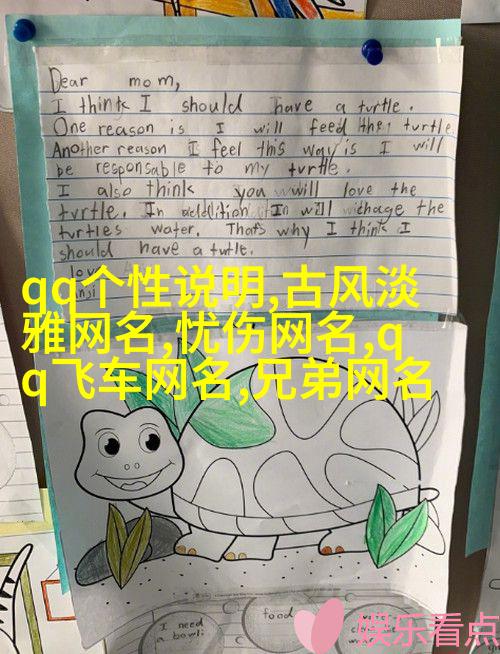 Dear mom,
I think I should have a turtle.
One reason is I will feed the turtle.
Another reason I feel this way is I will
be responsable to my turtle.
I also think you will love the
turtle. In addition I will chage the
turtles water. Thats why I think I
should have a turtle.
love
qq个性说明,古风淡
雅网名,忧伤网名,q
q飞车网名,兄弟网名
I need
a bowl
food
娱乐看点